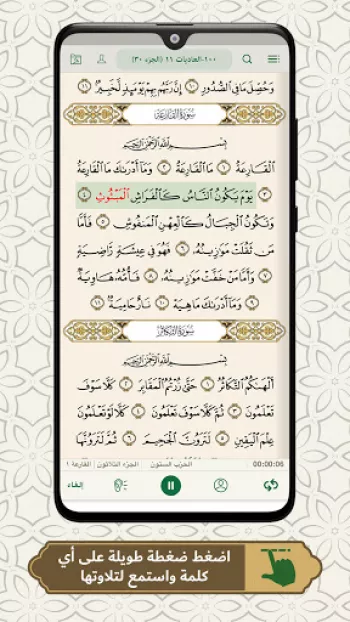 ١٠٠-العاديات ١١ (الجزء ٣٠)
وَحُصِّلَ مَا فِي ٱلصُّدُورِ ١٠ إِنَّ رَبَّهُم بِهِمْ يَوْمَئِذٍ لَّخَبِيرٌۢ ١١
سُورَةُ القَارِعَةِ
بِسْمِ ٱللَّهِ ٱلرَّحْمَٰنِ ٱلرَّحِيمِ
ٱلْقَارِعَةُ ١ مَا ٱلْقَارِعَةُ ٢ وَمَآ أَدْرَىٰكَ مَا ٱلْقَارِعَةُ
٣ يَوْمَ يَكُونُ ٱلنَّاسُ كَٱلْفَرَاشِ ٱلْمَبْثُوثِ ٤
وَتَكُونُ ٱلْجِبَالُ كَٱلْعِهْنِ ٱلْمَنفُوشِ ٥ فَأَمَّا
مَن ثَقُلَتْ مَوَٰزِينُهُۥ ٦ فَهُوَ فِي عِيشَةٍ رَّاضِيَةٍ
٧ وَأَمَّا مَنْ خَفَّتْ مَوَٰزِينُهُۥ ٨ فَأُمُّهُۥ هَاوِيَةٌ
٩ وَمَآ أَدْرَىٰكَ مَا هِيَهْ ١٠ نَارٌ حَامِيَةٌۢ ١١
سُورَةُ التَّكَاثُرِ
بِسْمِ ٱللَّهِ ٱلرَّحْمَٰنِ ٱلرَّحِيمِ
أَلْهَىٰكُمُ ٱلتَّكَاثُرُ ١ حَتَّىٰ زُرْتُمُ ٱلْمَقَابِرَ ٢ كَلَّا سَوْفَ
تَعْلَمُونَ ٣ ثُمَّ كَلَّا سَوْفَ تَعْلَمُونَ ٤ كَلَّا لَوْ تَعْلَمُونَ
عِلْمَ ٱلْيَقِينِ ٥ لَتَرَوُنَّ ٱلْجَحِيمَ ٦ ثُمَّ لَتَرَوُنَّهَا
القارعة ١ الجزء الثلاثون الحزب الستون 00:00:06
إلغاء
اضغط ضغطة طويلة على أي
كلمة واستمع لتلاوتها